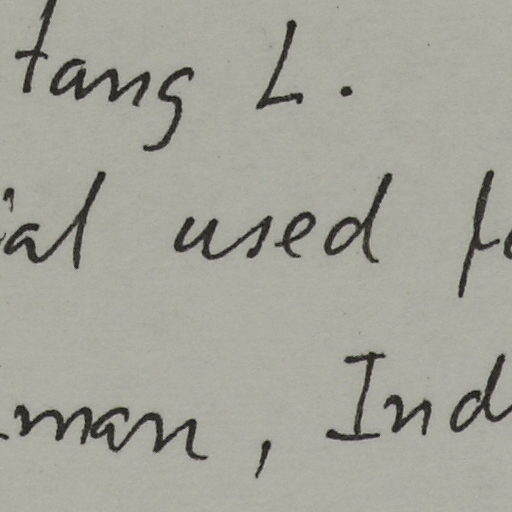 tang L.
ial used fo
man, Ind